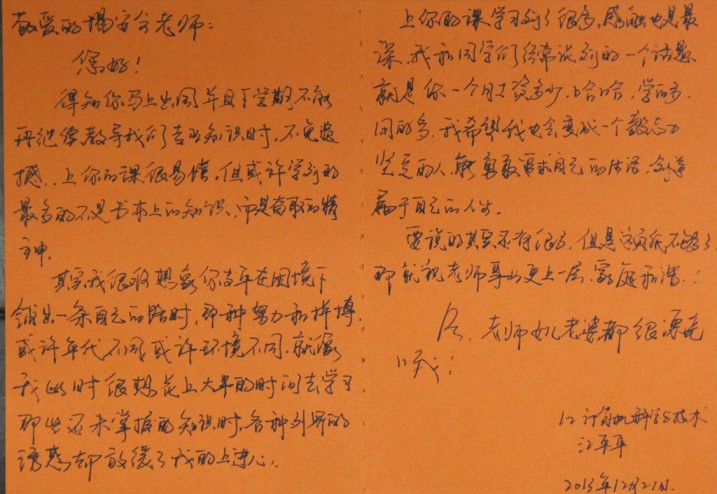 敬爱的杨安今老师：
您好！
得知你马上出国并且下学期不能
再继续教导我们专业知识时，不免遗
憾。上你的课很易懂。但或许学到的
最多的不是书本上的知识，而是奋取的精
神。
其实我很难想象你当年在困境下
领出一条自己的路时，那种努力和拼搏
或许年代不同或许环境不同，就像
我此时很想花上大半的时间去学习
那些还未掌握的知识时，各种外界的
诱惑却放缓了我的上进心。
上你的课学习到了很多，感触也是最
深，我和同学们经常谈到的一个话题
就是你一个月工资多少，哈哈，学的多，
回的多，我希望我也会变成一个毅志力
坚定的人，能勇敢追求自己的生活，创造
属于自己的人生。
要说的其实还有很多，但是这页纸不够了
那就祝老师事业更上一层，家庭和谐：
老师女儿老婆都很漂亮
哦！
12计算机科学与技术
江平平
2013年12月21日.